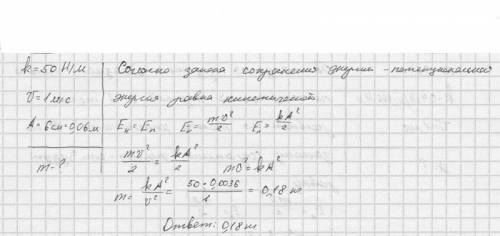 k = 50 Н/м
Согласно закона сохранения энергии - потенциальная
V = 1 м/с
энергия равна кинетической
A = 6 см = 0,06 м
Eк = Eп Eк = mV²/2 Eп = kA²/2
m - ?
mV²/2 = kA²/2 mV² = kA²
m = kA²/V² = 50 · 0,0036/1 = 0,18 кг
Ответ: 0,18 кг